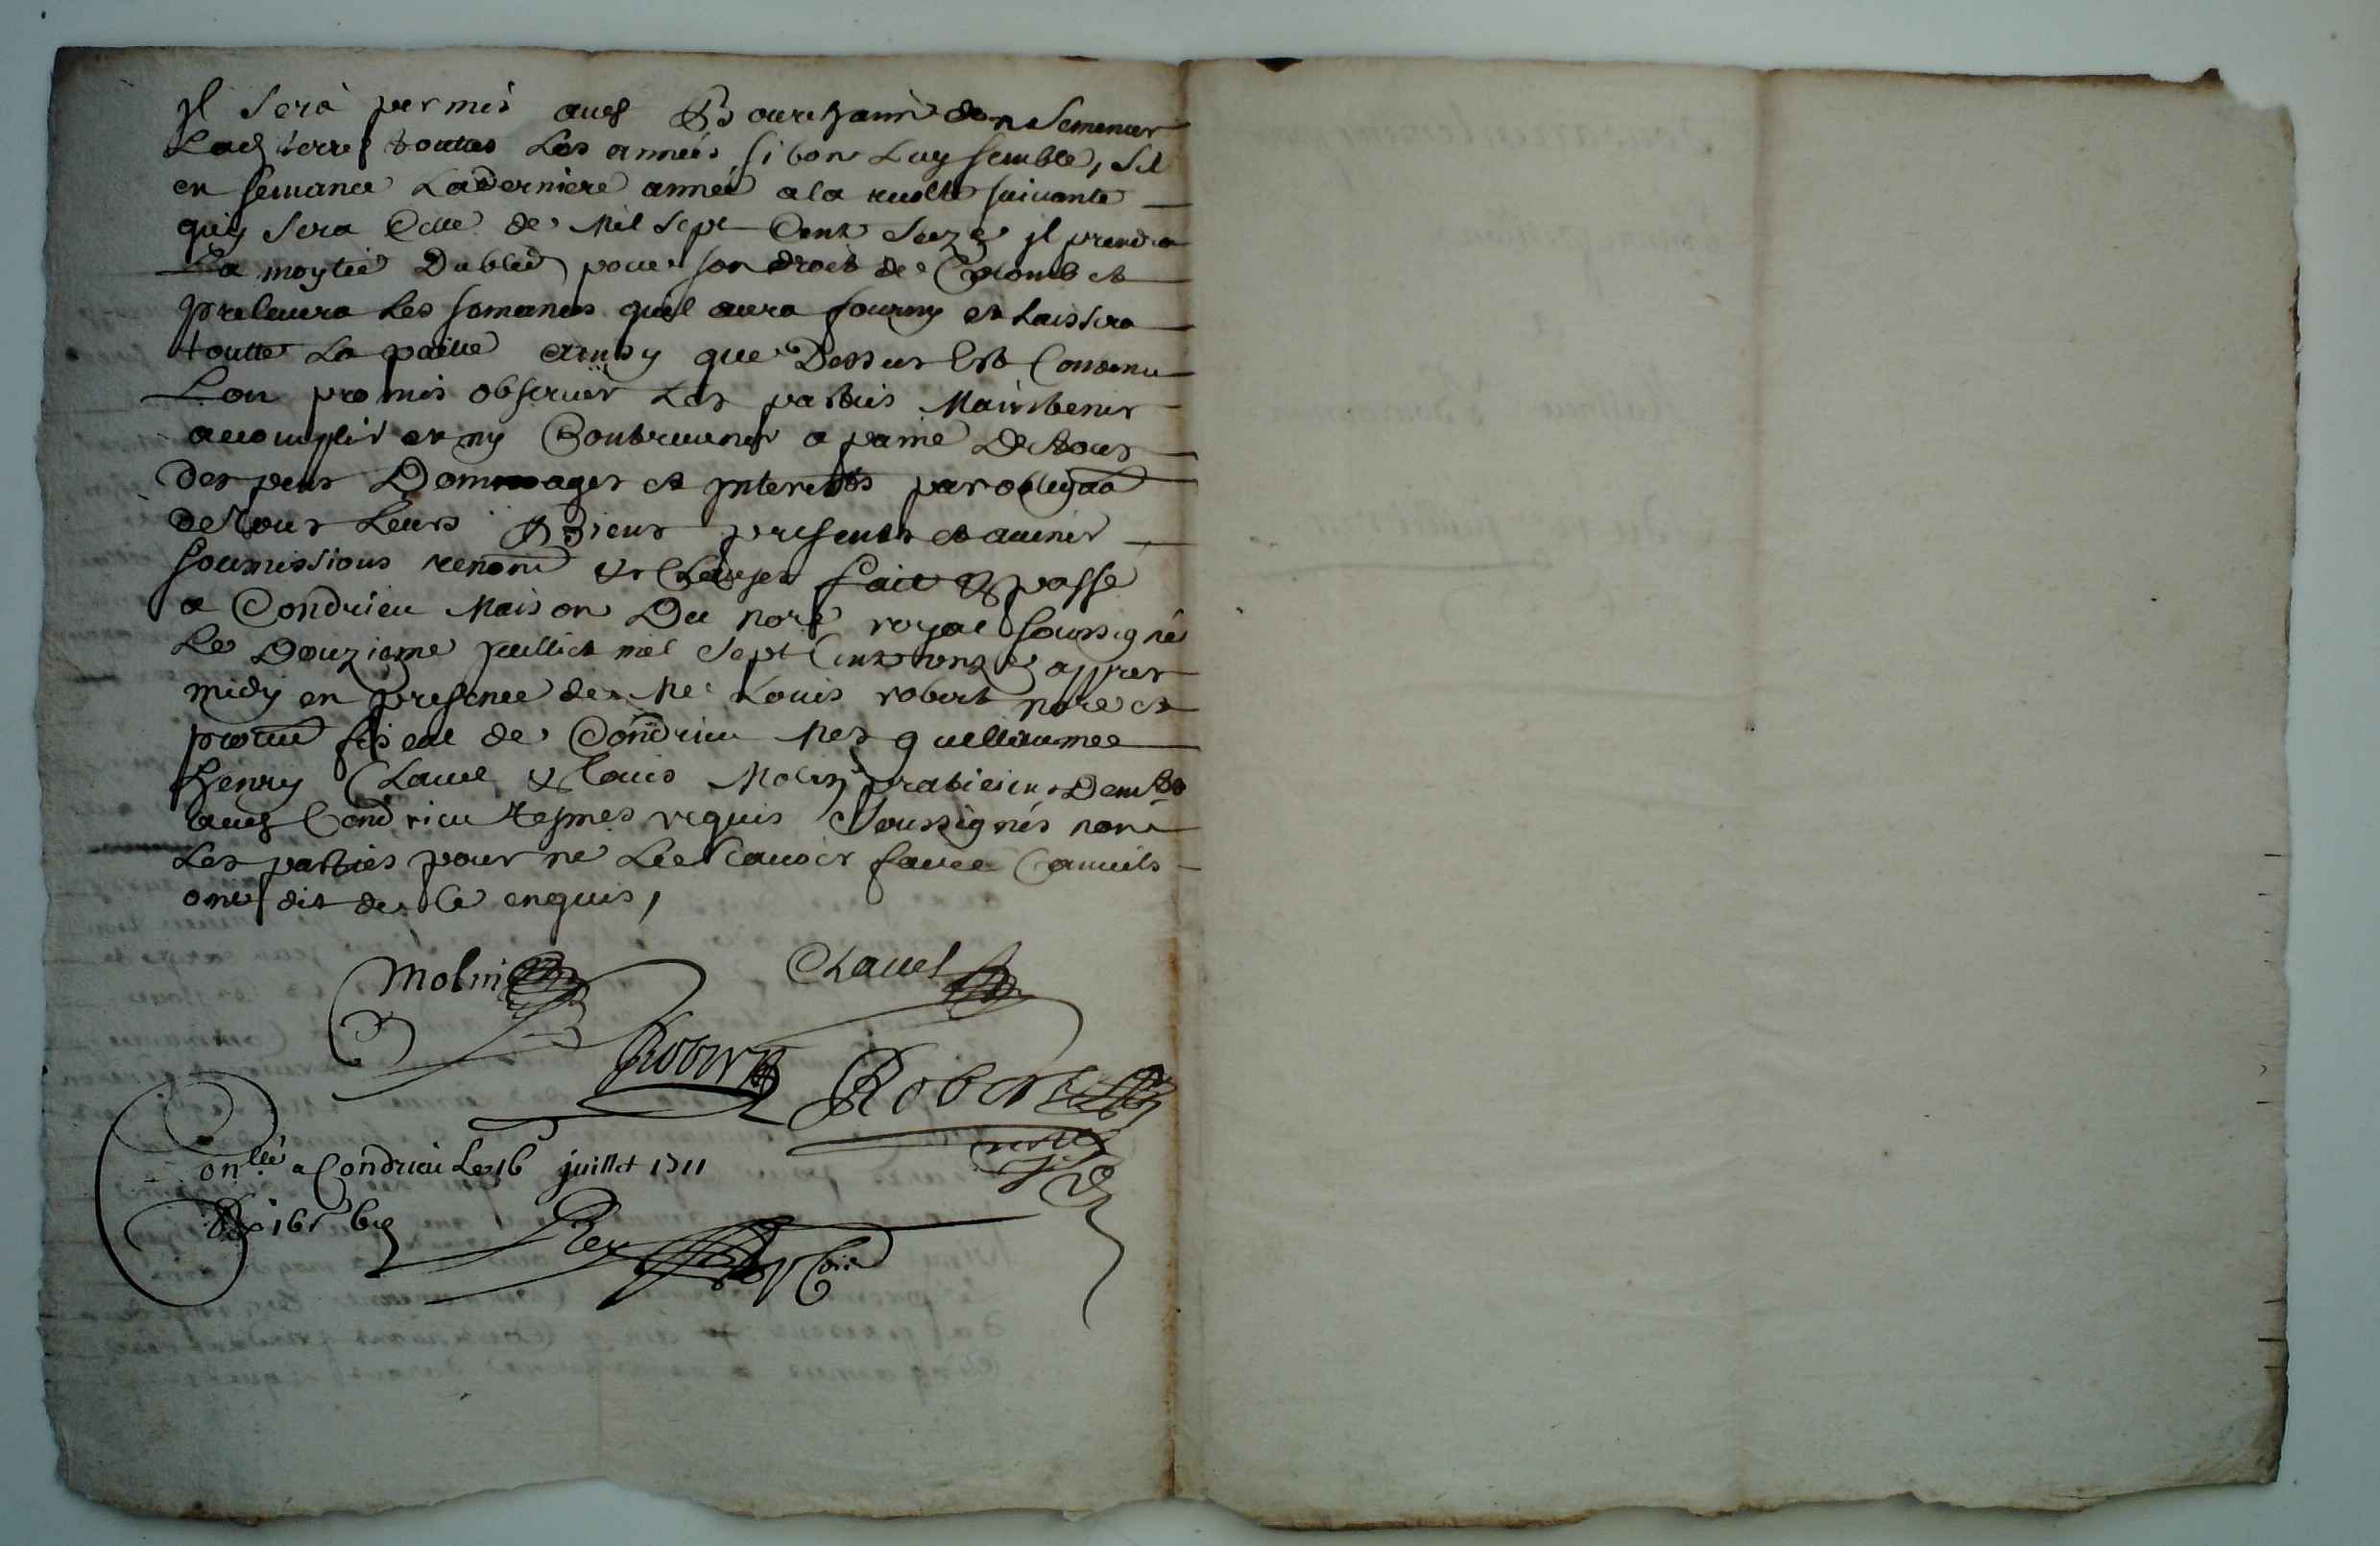 jl sera permis aud Bourchanin densemencer
Lad terre touttes Les années si bon Luy semble, sil
en semance La derniere année a la recolte suivante
quy sera Celle de Mil sept Cent seize jl prendra
La moytié Dubled pour son droit de Colomb et
prelevera Les semances quil aura fourny et Laissera
toutte La paille ainsy que Dessus Est Convenu
Lon promis observer Les parties Maintenir
acomplir et ny Contrevenir a paine De tous
despens Dommages et jnterests par obligaon
detous Leurs Biens presents et avenir
soumissions renonn et Clauses fait et passé
a Condrieu Maison Du nore royal soussigné
Le Douzieme juillet mil sept Cent onze appres
midy en presence de Me Louis robert nore et
procur fiscal de Condrieu Mes guelliaume
henry Clavel et Louis Molin praticiens Demts
aud Condrieu tesmes requis soussignés non
Les parties pour ne Le scavoir faire Comme ils
ont dit de Ce enquis,
Molin
Clavel
Robert
Robert
onllé a Condrieu Le 16 juillet 1711
Rey